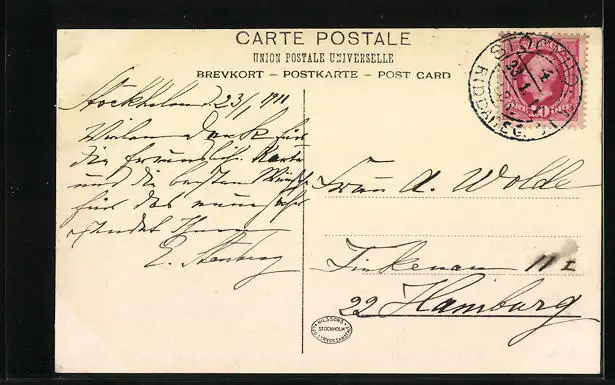 CARTE POSTALE
UNION POSTALE UNIVERSELLE
BREVKORT – POSTKARTE – POST CARD
Stockholm d 23/1 1911
Vielen Dank für
die freundlich. Karte
und die besten Wünsche
für das neue Jahr
sendet Ihnen
E. Stenberg
Frau A. Wolde
Finkenau 11 I
22 Hamburg
STOCKHOLM
ÖRE 10 ÖRE
STOCKHOLM